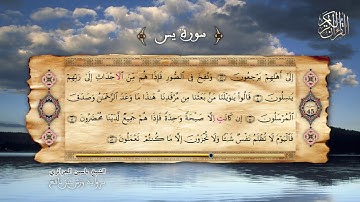 القرآن الكريم
سورة يس
إِلَىٰ أَهْلِهِمْ يَرْجِعُونَ وَنُفِخَ فِى ٱلصُّورِ فَإِذَا هُم مِّنَ ٱلَاجْدَاثِ إِلَىٰ رَبِّهِمْ
يَنسِلُونَ قَالُوا۟ يَٰوَيْلَنَا مَنۢ بَعَثَنَا مِن مَّرْقَدِنَا هَٰذَا مَا وَعَدَ ٱلرَّحْمَٰنُ وَصَدَقَ
ٱلْمُرْسَلُونَ إِن كَانَتِ اِلَّا صَيْحَةً وَٰحِدَةً فَإِذَا هُمْ جَمِيعٌ لَّدَيْنَا مُحْضَرُونَ
فَٱلْيَوْمَ لَا تُظْلَمُ نَفْسٌ شَيْـًٔا وَلَا تُجْزَوْنَ إِلَّا مَا كُنتُمْ تَعْمَلُونَ
الشيخ ياسين الجزائري
برواية ورش عن نافع